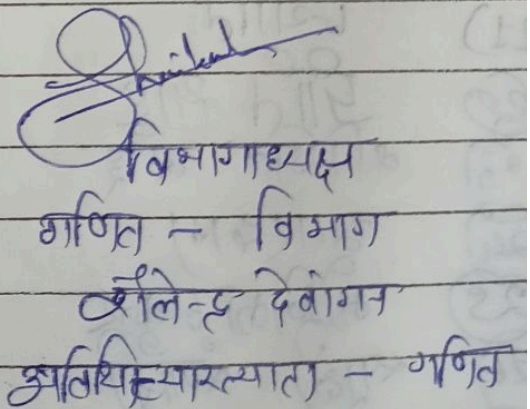 विभागाध्यक्ष
गणित - विभाग
शैलेन्द्र देवांगन
अतिथि व्याख्याता - गणित